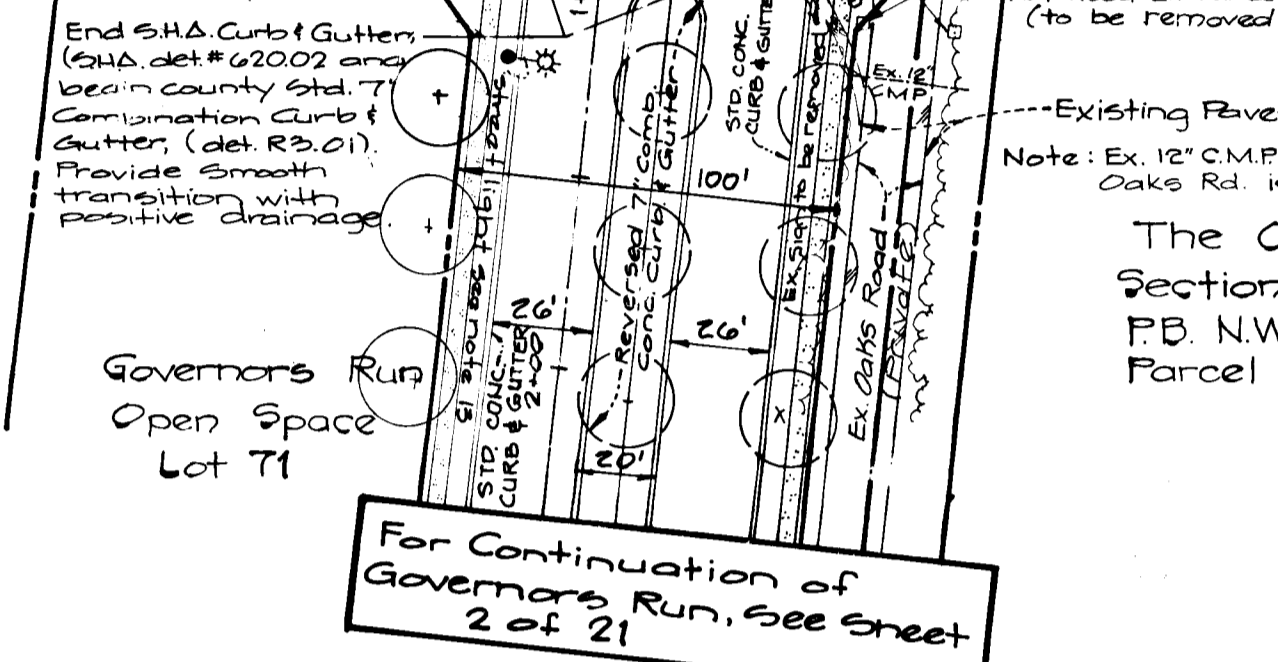 End S.H.A. Curb & Gutter,
(SHA. det. # 620.02 and
begin county Std. 7"
Combination Curb &
Gutter, (det. R3.01).
Provide Smooth
transition with
positive drainage.
Governors Run
Open Space
Lot 71
Street light see note 13
STD. CONC.
CURB & GUTTER
2+00
26'
20'
Reversed 7" Comb.
Conc. Curb & Gutter
100'
26'
STD. CONC.
CURB & GUTTE
Ex. Sign to be removed
Ex. 12"
C M P
Ex. Oaks Road
(Private)
(to be removed
Existing Pave
Note: Ex. 12" C.M.P.
Oaks Rd. i
The
Section
P.B. N.W
Parcel
For Continuation of
Governors Run, See Sheet
2 of 21